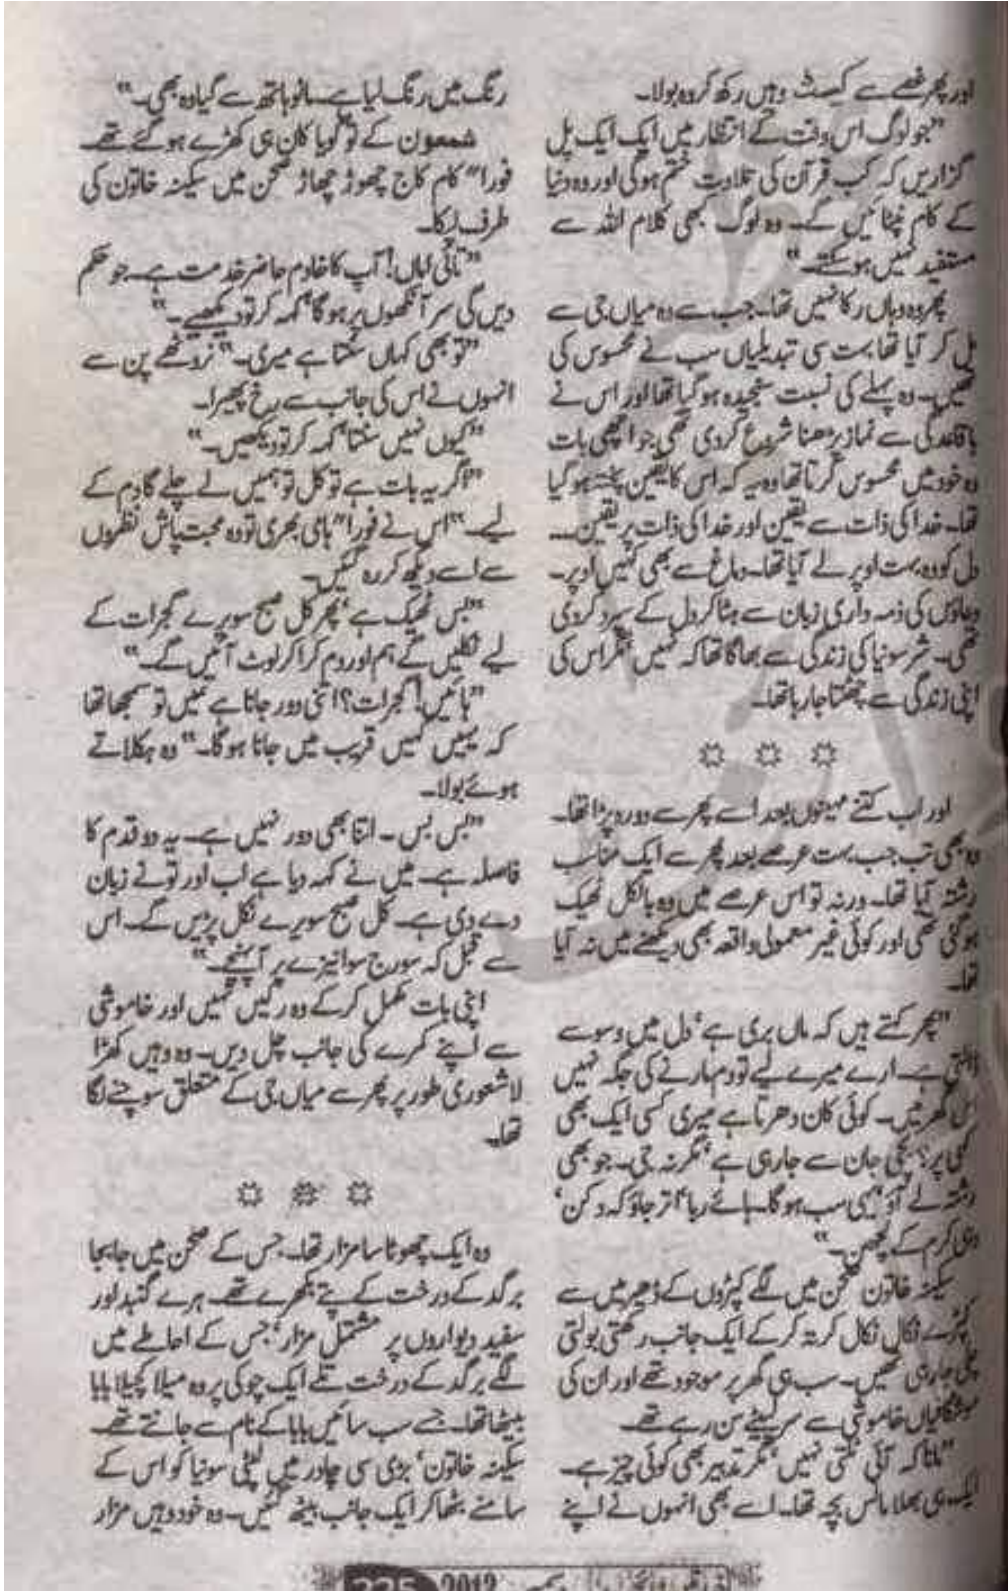 اور پھر غصے سے کیسٹ وہیں رکھ کر وہ بولا۔
"جو لوگ اس وقت کے انتظار میں ایک ایک پل
گزاریں کہ کب قرآن کی تلاوت ختم ہوگی اور وہ دنیا
کے کام نپٹائیں گے۔ وہ لوگ کبھی کلام اللہ سے
مستفید نہیں ہوسکتے۔"
پھر وہ وہاں رکا نہیں تھا۔ جب سے وہ میاں جی سے
مل کر آیا تھا بہت سی تبدیلیاں سب نے محسوس کی
تھیں۔ وہ پہلے کی نسبت سنجیدہ ہوگیا تھا اور اس نے
باقاعدگی سے نماز پڑھنا شروع کردی تھی جو اچھی بات
وہ خود میں محسوس کرتا تھا وہ یہ کہ اس کا یقین پختہ ہوگیا
تھا۔ خدا کی ذات سے یقین اور خدا کی ذات پر یقین۔۔
دل کو وہ بہت اوپر لے آیا تھا۔ دماغ سے بھی کہیں اوپر۔
دعاؤں کی ذمہ داری زبان سے ہٹا کر دل کے سپرد کردی
تھی۔ شر سونیا کی زندگی سے بھاگا تھا کہ نہیں مگر اس کی
اپنی زندگی سے چھٹتا جارہا تھا۔
اور اب کتنے مہینوں بعد اسے پھر سے دورہ پڑا تھا۔
وہ بھی تب جب بہت عرصے بعد پھر سے ایک مناسب
رشتہ آیا تھا۔ ورنہ تو اس عرصے میں وہ بالکل ٹھیک
ہوگئی تھی اور کوئی غیر معمولی واقعہ بھی دیکھنے میں نہ آیا
تھا۔
"پھر کہتے ہیں کہ ماں بری ہے' دل میں وسوسے
ڈالتی ہے۔ ارے میرے لیے تو دم مارنے کی جگہ نہیں
اس گھر میں۔ کوئی کان دھرتا ہے میری کسی ایک بھی
کہی پر؟ بچی جان سے جارہی ہے' مگر نہ جی۔ جو بھی
رشتہ لے آؤ' یہی سب ہوگا۔ ہائے ربا' اتر جاؤ کہ دکن'
وہی کرم کے لچھن۔"
سکینہ خاتون صحن میں لگے کپڑوں کے ڈھیر میں سے
کپڑے نکال نکال کر تہ کرکے ایک جانب رکھتی بولتی
چلی جارہی تھیں۔ سب ہی گھر پر موجود تھے اور ان کی
موشگافیاں خاموشی سے سر لپیٹے سن رہے تھے۔
"مانا کہ آئی ٹلتی نہیں' مگر تدبیر بھی کوئی چیز ہے۔
ایک ہی بھلا مانس بچہ تھا۔ اسے بھی انہوں نے اپنے
رنگ میں رنگ لیا ہے۔ سانو ہاتھ سے گیا وہ بھی۔"
شمعون کے تو گویا کان ہی کھڑے ہوگئے تھے۔
فورا" کام کاج چھوڑ چھاڑ صحن میں سکینہ خاتون کی
طرف لپکا۔
"تائی اماں! آپ کا خادم حاضر خدمت ہے۔ جو حکم
دیں گی سر آنکھوں پر ہوگا' کہہ کر تو دیکھیے۔"
"تو بھی کہاں سنتا ہے میری۔" نروٹھے پن سے
انہوں نے اس کی جانب سے رخ پھیرا۔
"کیوں نہیں سنتا' کہہ کر تو دیکھیں۔"
"اگر یہ بات ہے تو کل تو ہمیں لے چلے گا دم کے
لیے۔" اس نے فورا" ہامی بھری تو وہ محبت پاش نظروں
سے اسے دیکھ کر رہ گئیں۔
"بس ٹھیک ہے' پھر کل صبح سویرے گجرات کے
لیے نکلیں گے ہم اور دم کرا کر لوٹ آئیں گے۔"
"ہائیں! گجرات؟ اتنی دور جانا ہے میں تو سمجھا تھا
کہ یہیں کہیں قریب میں جانا ہوگا۔" وہ ہکلاتے
ہوئے بولا۔
"بس بس۔ اتنا بھی دور نہیں ہے۔ یہ دو قدم کا
فاصلہ ہے۔ میں نے کہہ دیا ہے اب اور تو نے زبان
دے دی ہے۔ کل صبح سویرے نکل پڑیں گے۔ اس
سے قبل کہ سورج سوا نیزے پر آپہنچے۔"
اپنی بات مکمل کرکے وہ رکیں نہیں اور خاموشی
سے اپنے کمرے کی جانب چل دیں۔ وہ وہیں کھڑا
لاشعوری طور پر پھر سے میاں جی کے متعلق سوچنے لگا
تھا۔
وہ ایک چھوٹا سا مزار تھا۔ جس کے صحن میں جابجا
برگد کے درخت کے پتے بکھرے تھے۔ ہرے گنبد اور
سفید دیواروں پر مشتمل مزار' جس کے احاطے میں
لگے برگد کے درخت تلے ایک چوکی پر وہ میلا کچیلا بابا
بیٹھا تھا۔ جسے سب سائیں بابا کے نام سے جانتے تھے۔
سکینہ خاتون' بڑی سی چادر میں لپٹی سونیا کو اس کے
سامنے بٹھا کر ایک جانب بیٹھ گئیں۔ وہ خود وہیں مزار
2012 225